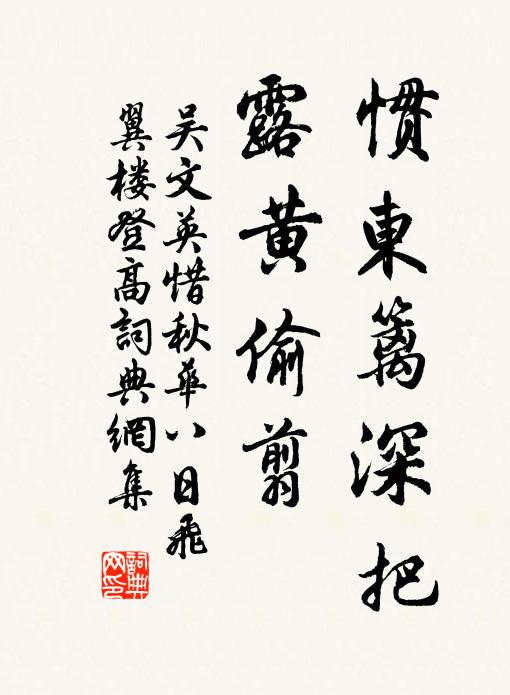 慣東篱深把
露黃偷翦
吴文英惜秋華八日飛
翼楼登高詞典網集
詞典網印